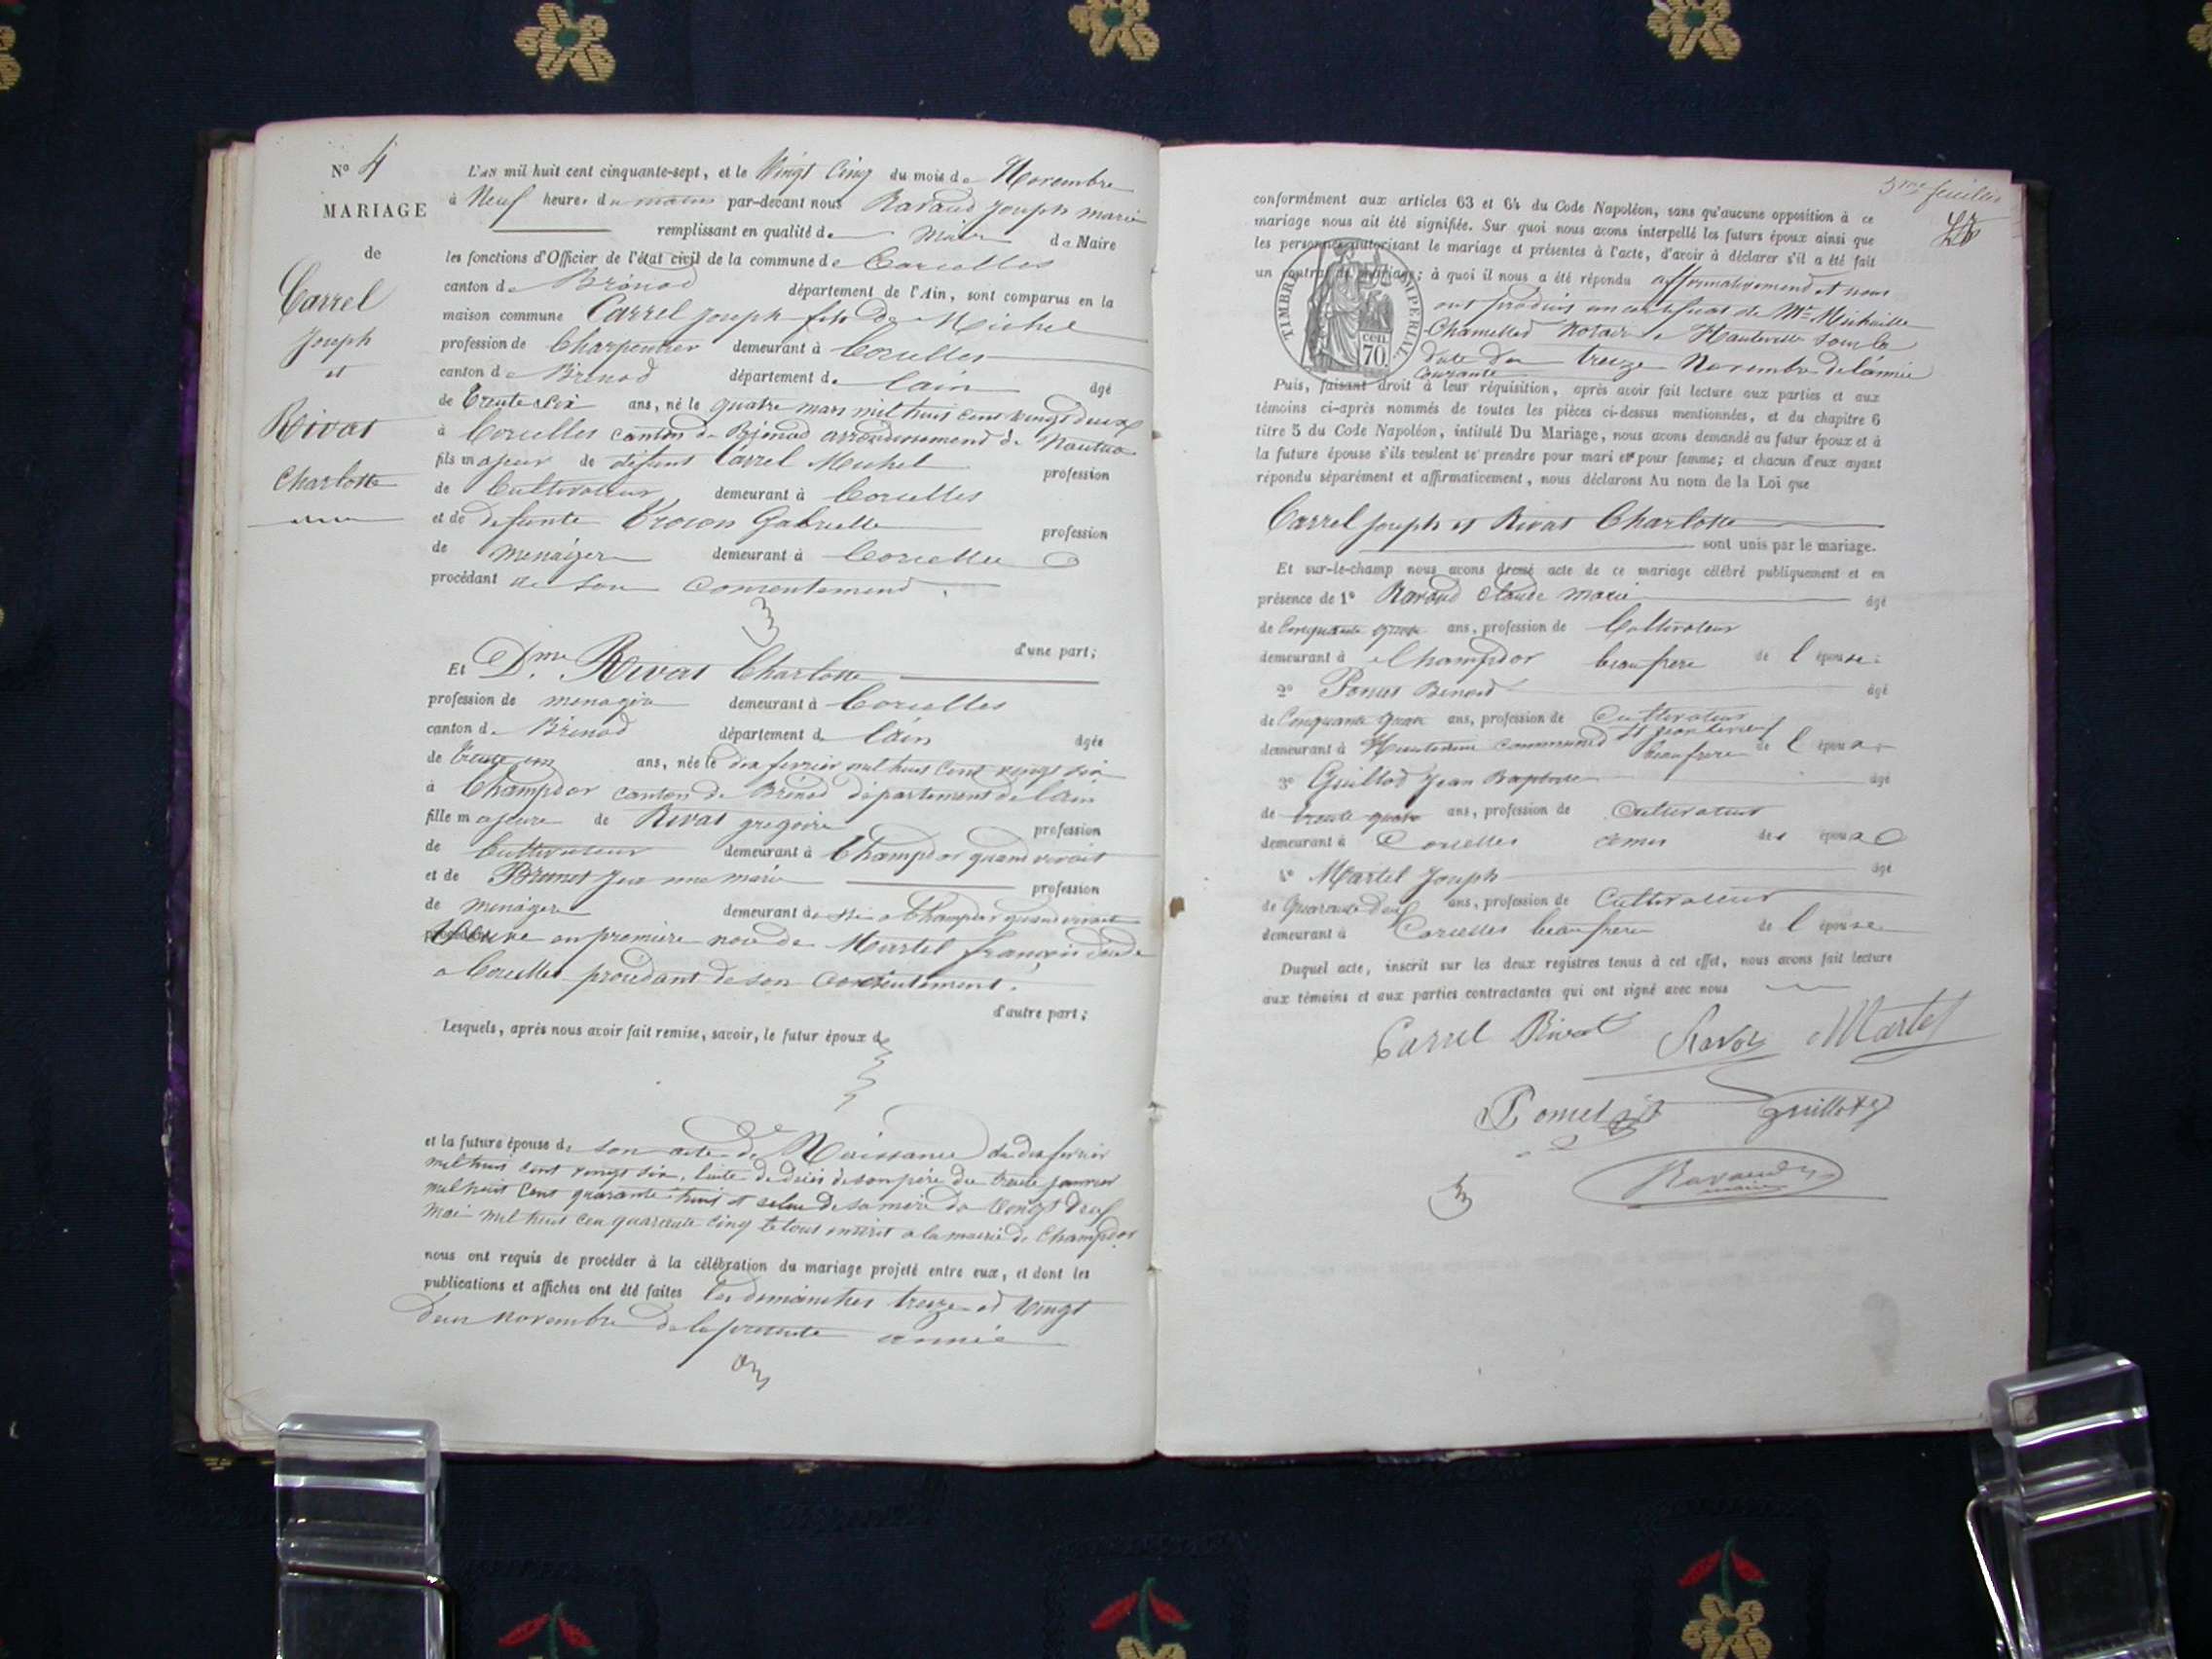 N° 4
MARIAGE
de
Carrel
Joseph
et
Rivat
Charlotte
L'AN mil huit cent cinquante-sept, et le Vingt Cinq du mois de Novembre
à Neuf heures du matin par-devant nous Ravaud Joseph marie
remplissant en qualité de Maire de Maire
les fonctions d'Officier de l'état civil de la commune de Corcelles
canton de Brénod département de l'Ain, sont comparus en la
maison commune Carrel Joseph fils de Michel
profession de Charpentier demeurant à Corcelles
canton de Brénod département de lain âgé
de trente six ans, né le quatre mars mil huit cent vingt deux
à Corcelles canton de Brénod arrondissement de Nantua
fils majeur de défunt Carrel Michel profession
de Cultivateur demeurant à Corcelles
et de defunte Gabrielle profession
de menagere demeurant à Corcelles
procédant de son consentement
d'une part;
Et Dme Rivat Charlotte
profession de menagère demeurant à Corcelles
canton de Brénod département de lain âgée
de trente un ans, née le dix fevrier mil huit cent vingt six
à Champdor canton de Brénod département de lain
fille majeure de Rivat gregoire profession
de Cultivateur demeurant à Champdor quand vivait
et de Brunet Jeanne marie profession
de menagere demeurant à Champdor quand vivait
Veuve en première noce de Martel françois
a Corcelles procedant de son consentement.
d'autre part;
Lesquels, après nous avoir fait remise, savoir, le futur époux de
et la future épouse de son acte de Naissance du dix fevrier
mil huit cent vingt six, de son père du trente janvier
mil huit cent quarante huit et celui de sa mère du vingt deux
mai mil huit cen quarante cinq le tout inscrit a la mairie de Champdor
nous ont requis de procéder à la célébration du mariage projeté entre eux, et dont les
publications et affiches ont été faites les dimanches treize et vingt
deux novembre de la presente année
5me feuillet
conformément aux articles 63 et 64 du Code Napoléon, sans qu'aucune opposition à ce
mariage nous ait été signifiée. Sur quoi nous avons interpellé les futurs époux ainsi que
les personnes autorisant le mariage et présentes à l'acte, d'avoir à déclarer s'il a été fait
un contrat de mariage; à quoi il nous a été répondu affirmativement et nous
ont produit un certificat de Me
Notaire a Hauteville sous la
date du treize Novembre de l'année
courante
TIMBRE IMPÉRIAL
cen.
70
Puis, faisant droit à leur réquisition, après avoir fait lecture aux parties et aux
témoins ci-après nommés de toutes les pièces ci-dessus mentionnées, et du chapitre 6
titre 5 du Code Napoléon, intitulé Du Mariage, nous avons demandé au futur époux et à
la future épouse s'ils veulent se prendre pour mari et pour femme; et chacun d'eux ayant
répondu séparément et affirmativement, nous déclarons Au nom de la Loi que
Carrel Joseph et Rivat Charlotte
sont unis par le mariage.
Et sur-le-champ nous avons dressé acte de ce mariage célébré publiquement et en
présence de 1° Ravaud Claude marie âgé
de Cinquante quatre ans, profession de Cultivateur
demeurant à Champdor beau frere de l épouse
2° âgé
de Cinquante quatre ans, profession de Cultivateur
demeurant à commune de beau frere de l épouse
3° Guillod Jean Baptiste âgé
de trente quatre ans, profession de Cultivateur
demeurant à Corcelles amis des époux
4° Martel Joseph âgé
de Quarante deux ans, profession de Cultivateur
demeurant à Corcelles beau frere de l épouse
Duquel acte, inscrit sur les deux registres tenus à cet effet, nous avons fait lecture
aux témoins et aux parties contractantes qui ont signé avec nous
Carrel Rivat Martel
Guillot
Ravaud
maire